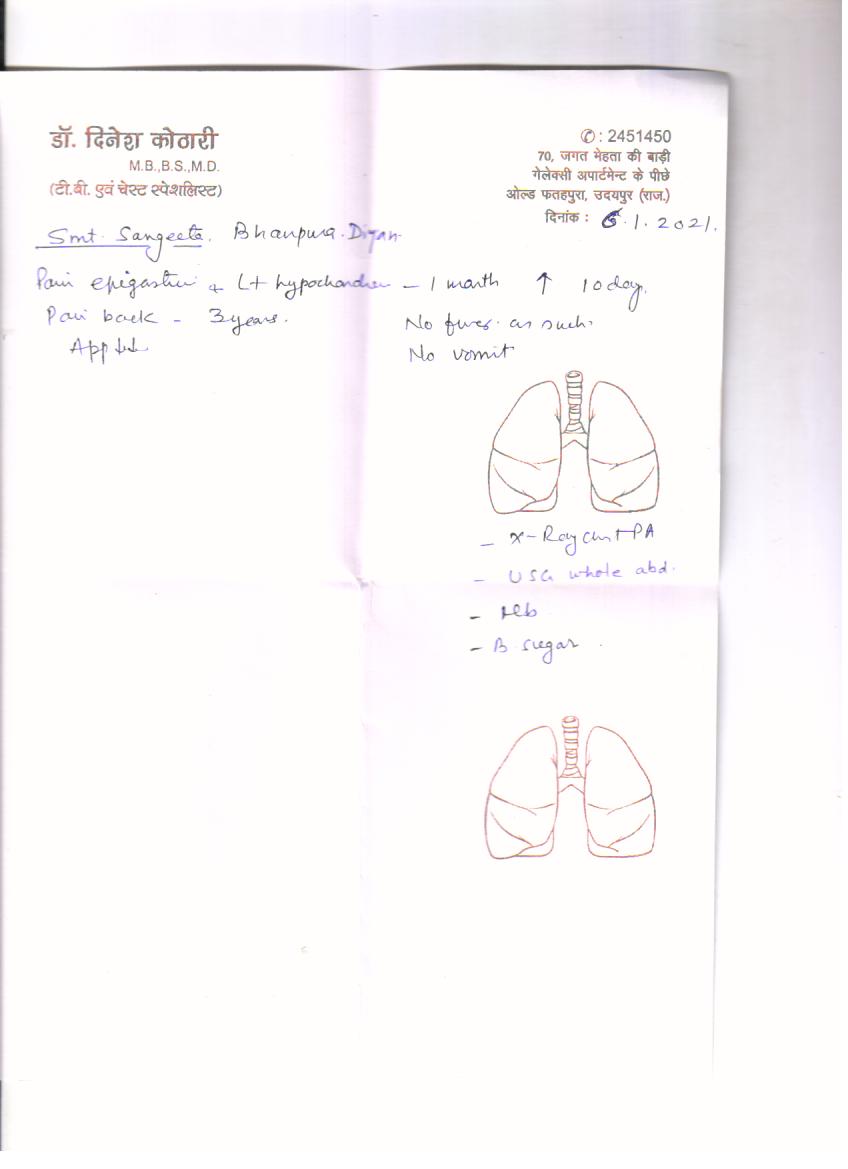 डॉ. दिनेश कोठारी
M.B.,B.S.,M.D.
(टी.बी. एवं चेस्ट स्पेशलिस्ट)
✆ : 2451450
70, जगत मेहता की बाड़ी
गेलेक्सी अपार्टमेन्ट के पीछे
ओल्ड फतहपुरा, उदयपुर (राज.)
दिनांक : 6.1.2021.
Smt. Sangeeta. Bhanpura.
Pain + Lt hypochondri – 1 month ↑ 10 day.
Pain back – 3 years. No fever as such.
App ↓↓ No vomit
– X-Ray chest PA
– USG whole abd.
– Hb
– B sugar